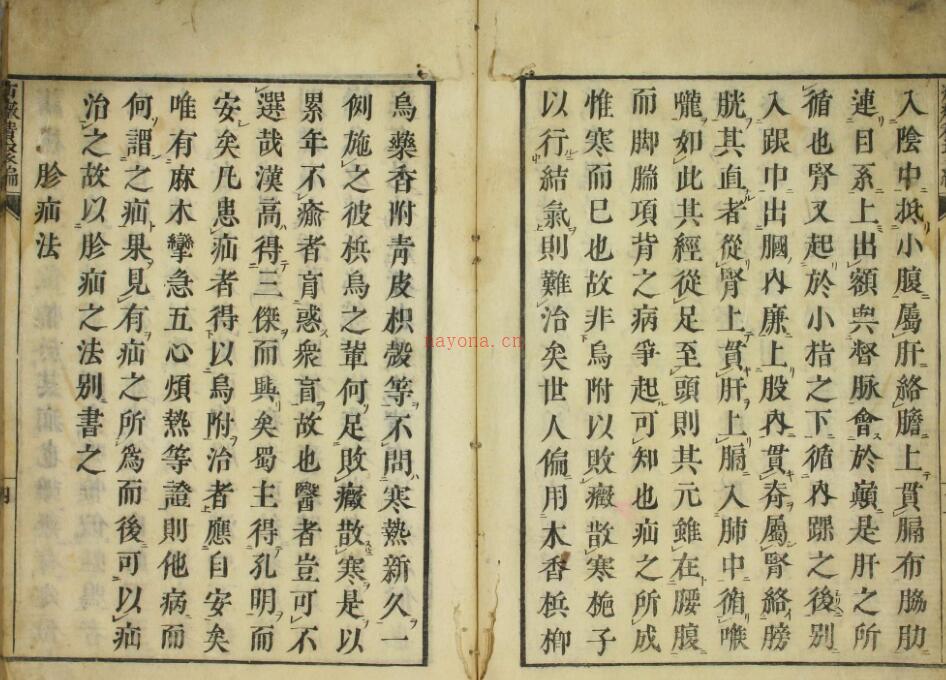 入陰中抵小腹屬肝絡膽上貫膈布脇肋
連目系上出額與督脉會於巔是肝之所
循也腎又起於小指之下循內踝之後別
入跟中出膕內廉上股內貫脊屬腎絡膀
胱其直者從腎上貫肝上膈入肺中循喉
嚨如此其經從足至頭則其元雖在腰腹
而脚腨項背之病爭起可知也疝之所成
惟寒而已也故非烏附以敗癥散寒梔子
以行結氣則難治矣世人偏用木香檳榔
烏藥香附青皮枳殼等不問寒熱新久一
例施之彼檳烏之輩何足敗癥散寒是以
累年不瘉者肓惑衆盲故也醫者豈可不
選哉漢高得三傑而興矣蜀主得孔明而
安矣凡患疝者得以烏附治者應自安矣
唯有麻木攣急五心煩熱等證則他病而
何謂之疝果見有疝之所為而後可以疝
治之故以胗疝之法別書之
胗疝法
nayona.cn